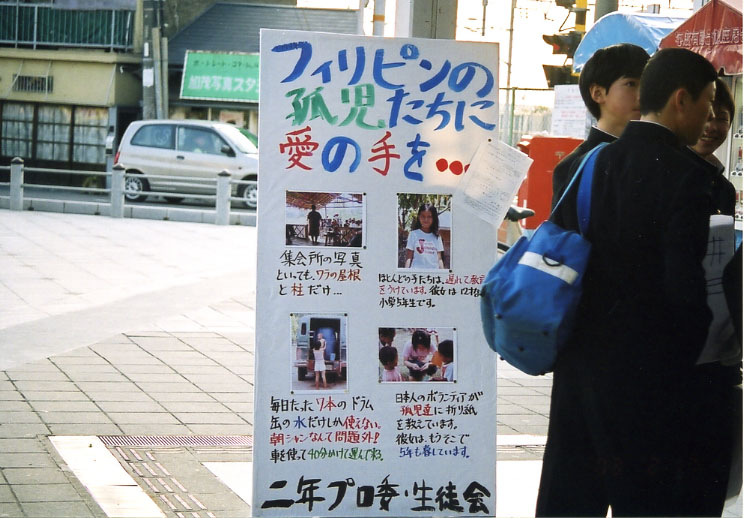 加茂写真スタ
フィリピンの
孤児たちに
愛の手を…
集会所の写真
といっても、ワラの屋根
と柱だけ…
ほとんどの子たちは、遅れて教育
をうけています。彼女は12才
小学5年生です。
毎日たった7本のドラム
缶の水だけしか使えない。
朝シャンなんて問題外!
車を使って40分かけて運んでくる。
日本人のボランティアが
孤児達に折り紙
を教えています。
彼女は、もうそこで
5年も暮しています。
二年プロ委・生徒会